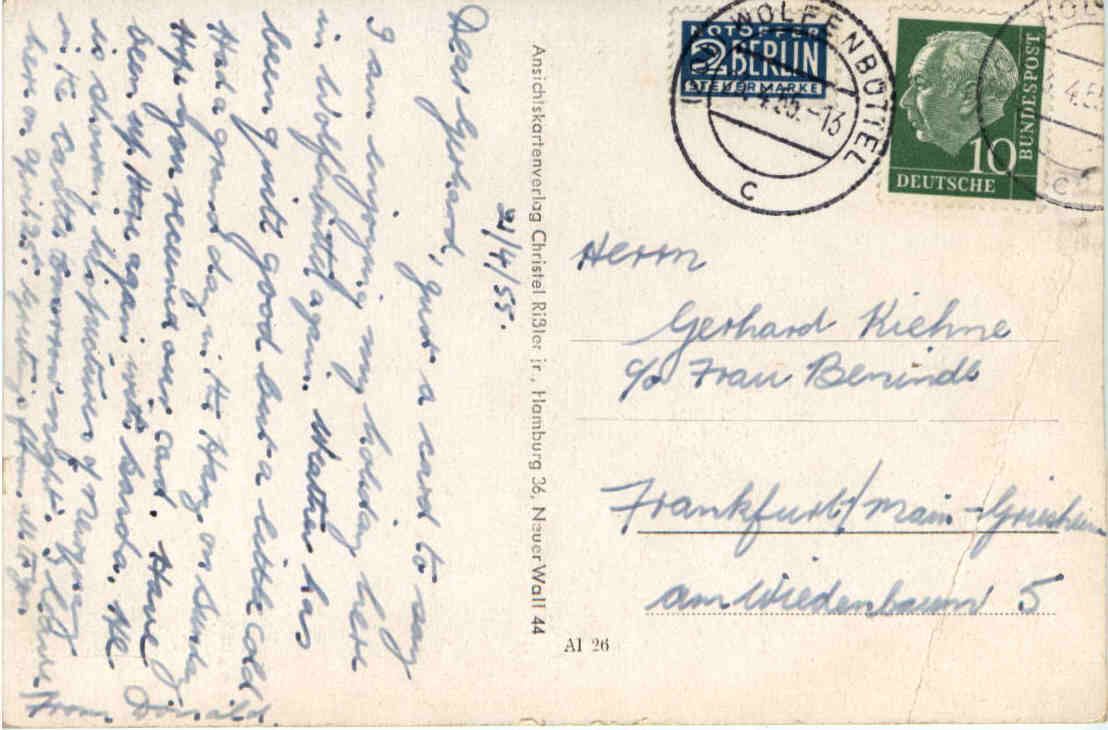 21/4/55.
Dear Gerhard, Just a card to say
I am enjoying my holiday here
in Wolfenbüttel again. Weather has
been quite good but a little cold.
Had a grand day in the Harz on Sunday
Hope you received our card. Have
been up Harz again with
is showing his pictures of
in the tomorrow night.
here on April 25. Greetings from
From Donald.
Ansichtskartenverlag Christel Rißler jr., Hamburg 36, Neuer Wall 44
NOTOPFER
2 BERLIN
STEUERMARKE
WOLFENBÜTTEL
.4.55.-13
C
10
DEUTSCHE
BUNDESPOST
Herrn
Gerhard Kiehne
c/o Frau
Frankfurt/Main-Griesheim
am Wiedenbaum 5
AI 26